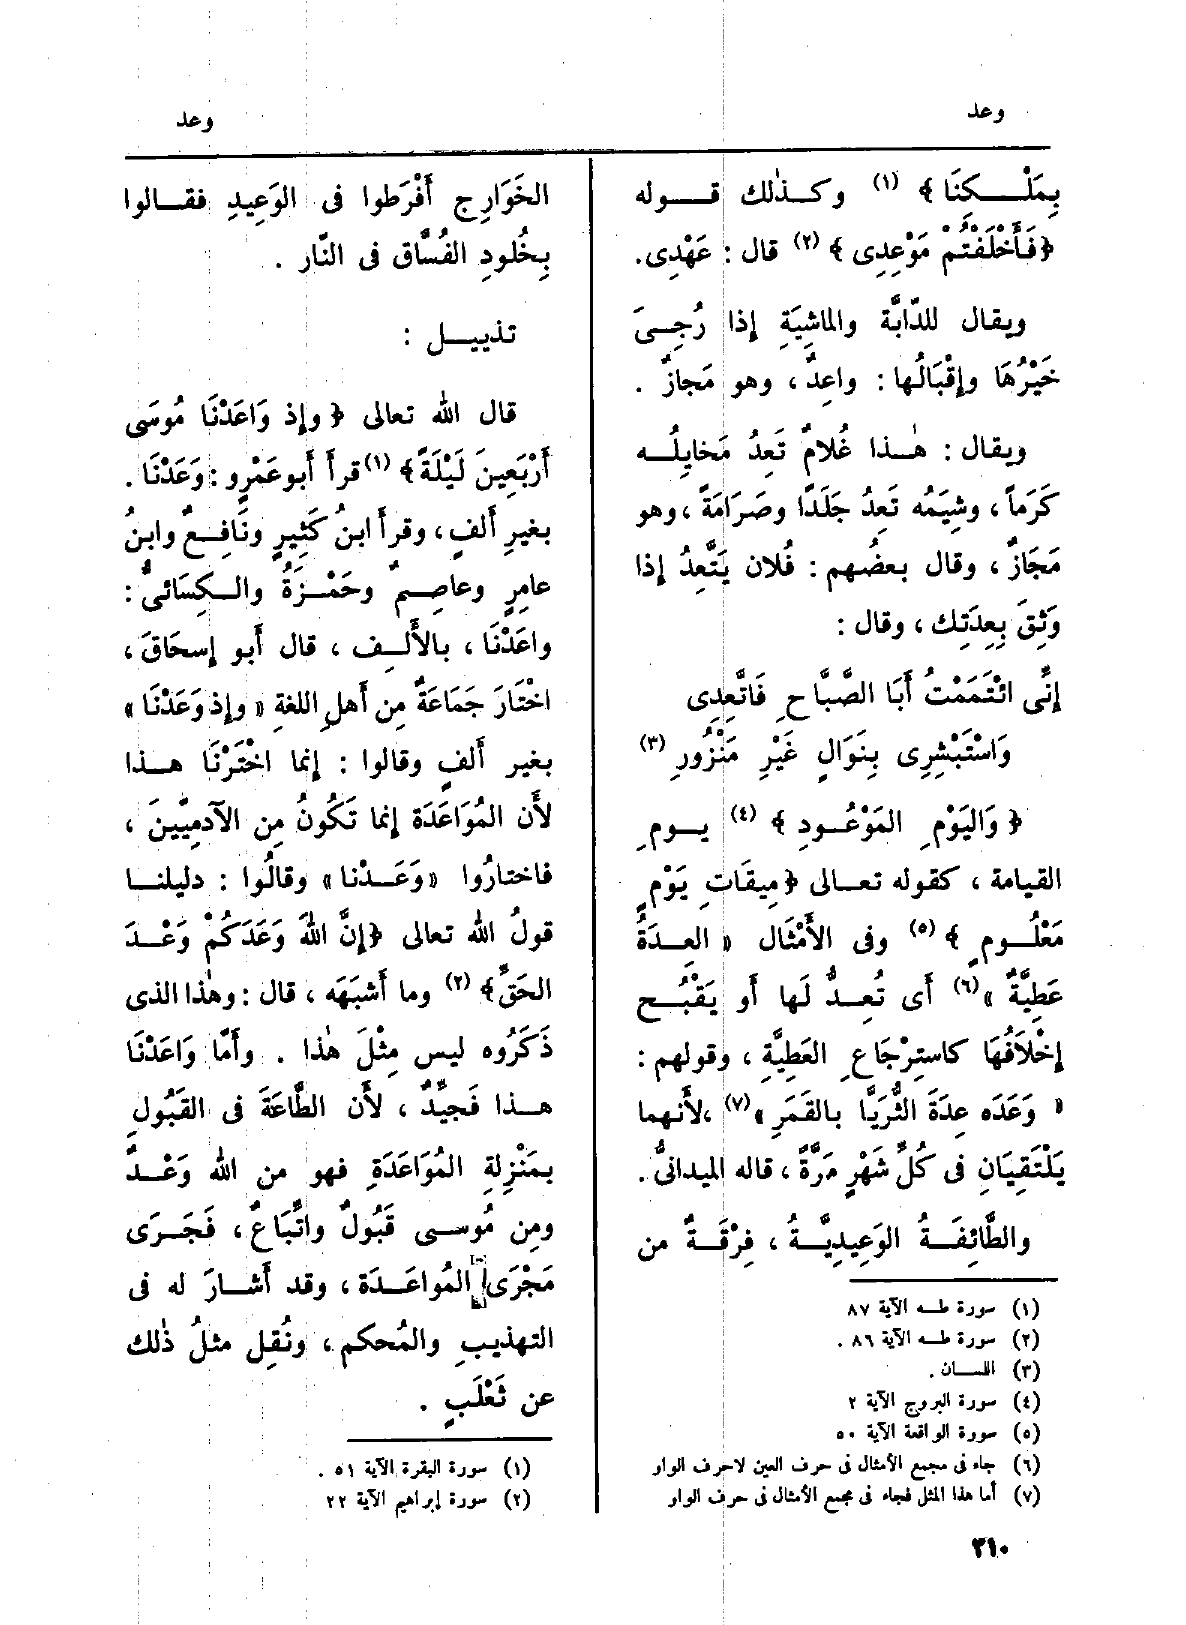 وعد
وعد
بِمَلْـكِنَا﴾ (١) وكـذٰلك قـوله
﴿فَأَخْلَفْتُمْ مَوْعِدِى﴾ (٢) قال : عَهْدِى.
ويقال للدّابَّة والماشِيَةِ إذا رُجِـىَ
خَيْرُهَا وإقْبَالُها : واعِدٌ ، وهو مَجازٌ .
ويقال : هٰـذا غُلامٌ تَعِدُ مَخايِلُـه
كَرَماً ، وشِيَمُه تَعِدُ جَلَدًا وصَرَامَةً ، وهو
مَجَازٌ ، وقال بعضُهم : فُلان يَتَّعِدُ إذا
وَثِقَ بِعِدَتِك ، وقال :
إنِّى ائْتَمَمْتُ أبَا الصَّبَّاحِ فَاتَّعِدِى
وَاسْتَبْشِرِى بِنَوَالٍ غَيْرِ مَنْزُورِ (٣)
﴿وَاليَوْمِ المَوْعُودِ﴾ (٤) يـومِ
القيامة ، كقوله تعـالى ﴿مِيقَاتِ يَوْمٍ
مَعْلُـومٍ﴾ (٥) وفى الأَمْثَال « العِـدَةُ
عَطِيَّةٌ » (٦) أى تُعـدُّ لَها أو يَقْبُـح
إخْلَافُهَا كاستِرْجَاعِ العَطِيَّةِ ، وقولهم :
« وَعَدَه عِدَةَ الثُّرَيَّا بالقَمَرِ » (٧) ، لأنهما
يَلْتَقِيَانِ فى كُلِّ شَهْرٍ مَرَّةً ، قاله الميدانىُّ .
والطَّائِفَـةُ الوَعِيدِيَّـةُ ، فِرْقَـةٌ من
(١) سورة طـه الآية ٨٧
(٢) سورة طـه الآية ٨٦ .
(٣) اللسـان .
(٤) سورة البروج الآية ٢
(٥) سورة الواقعة الآية ٥٠
(٦) جاء فى مجمع الأمثال فى حرف العين لاحرف الواو
(٧) أما هذا المثل فجاء فى مجمع الأمثال فى حرف الواو
الخَوَارِج أَفْرَطوا فى الوَعِيدِ فقـالوا
بِخُلودِ الفُسَّاق فى النَّار .
تذييـل :
قال الله تعالى ﴿وإذ وَاعَدْنَا مُوسَى
أَرْبَعِينَ لَيْلَةً﴾ (١) قرأ أبو عَمْرٍو : وَعَدْنَا .
بغيرِ ألفٍ ، وقرأ ابنُ كَثِيرٍ ونَافِـعٌ وابنُ
عامِرٍ وعاصِـمٌ وحَمْـزَةُ والـكِسَائىُّ :
واعَدْنَا ، بالأَلِـف ، قال أبو إسحَاقَ ،
اختَارَ جَمَاعَةٌ مِن أهلِ اللغةِ « وإذ وَعَدْنَا »
بغير ألفٍ وقالوا : إنما اخْتَرْنَا هـذا
لأَن المُوَاعَدَة إنما تَكُونُ مِن الآدمِيِّينَ ،
فاختارُوا «وَعَـدْنا» وقالُوا : دليلنـا
قولُ الله تعالى ﴿إنَّ اللهَ وَعَدَكُمْ وَعْـدَ
الحَقِّ﴾ (٢) وما أَشبَهَه ، قال : وهٰذا الذى
ذَكَرُوه ليس مِثْلَ هٰذا . وأَمَّا وَاعَدْنَا
هـذا فَجيِّدٌ ، لأَن الطَّاعَةَ فى القَبُولِ
بمَنْزِلةِ المُوَاعَدَةِ فهو من الله وَعْـدٌ
ومِن مُوسـى قَبُولٌ واتِّبَاعٌ ، فَجَـرَى
مَجْرَى المُواعَـدَة ، وقد أَشـارَ له فى
التهذيبِ والمُحكم ، ونُقِل مثلُ ذٰلك
عن ثَعْلَبٍ .
(١) سورة البقرة الآية ٥١ .
(٢) سورة إبراهيم الآية ٢٢
٣١٠